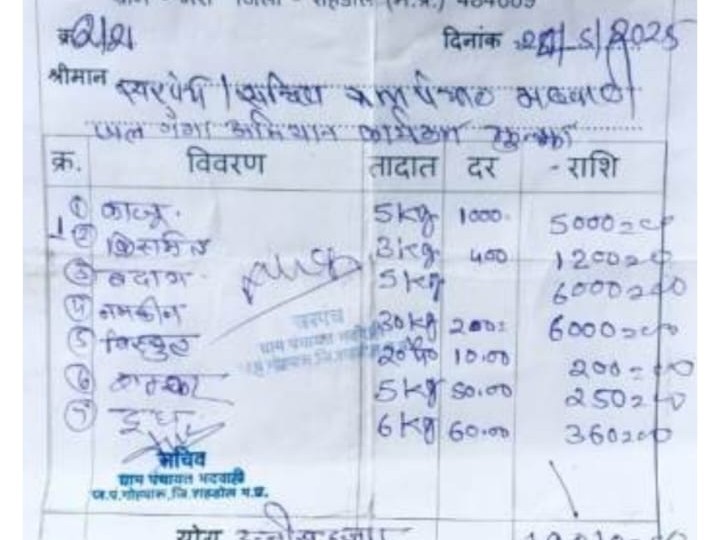 जिला - शहडोल (म.प्र.) 484669
क्र. 2/2 दिनांक 25/5/2025
श्रीमान सरपंच / सचिव ग्राम पंचायत भदवाही
जल गंगा अभियान कार्यक्रम
क्र. विवरण तादात दर राशि
① काजू 5 kg 1000 5000=00
② किसमिस 3 kg 400 1200=00
③ बदाम 5 kg 6000=00
④ नमकीन 30 kg 200= 6000=00
⑤ बिस्कुट 20 10.00 200=00
⑥ शक्कर 5 kg 50.00 250=00
⑦ दूध 6 kg 60.00 360=00
सरपंच
ग्राम पंचायत भदवाही
सचिव
ग्राम पंचायत भदवाही
ज.पं.गोहपारू, जि.शहडोल म.प्र.
योग उन्नीस हजार